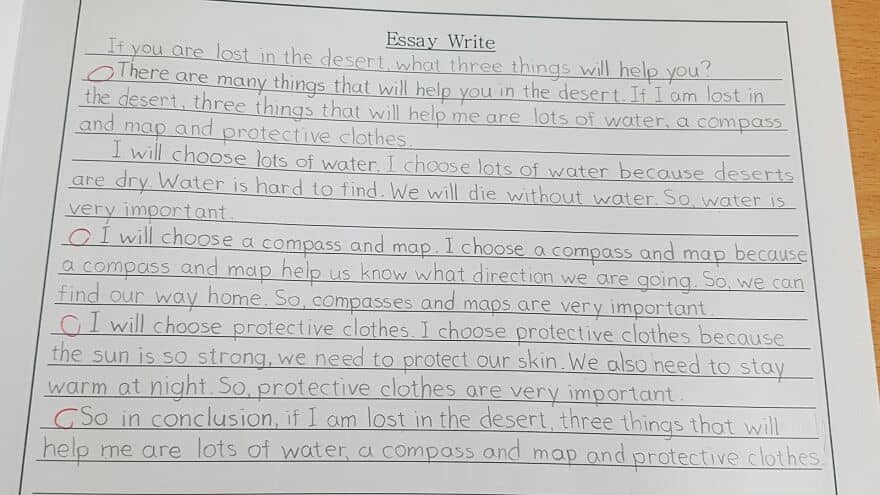 Essay Write
If you are lost in the desert, what three things will help you?
There are many things that will help you in the desert. If I am lost in
the desert, three things that will help me are lots of water, a compass
and map and protective clothes.
I will choose lots of water. I choose lots of water because deserts
are dry. Water is hard to find. We will die without water. So, water is
very important.
I will choose a compass and map. I choose a compass and map because
a compass and map help us know what direction we are going. So, we can
find our way home. So, compasses and maps are very important.
I will choose protective clothes. I choose protective clothes because
the sun is so strong, we need to protect our skin. We also need to stay
warm at night. So, protective clothes are very important.
So in conclusion, if I am lost in the desert, three things that will
help me are lots of water, a compass and map and protective clothes.